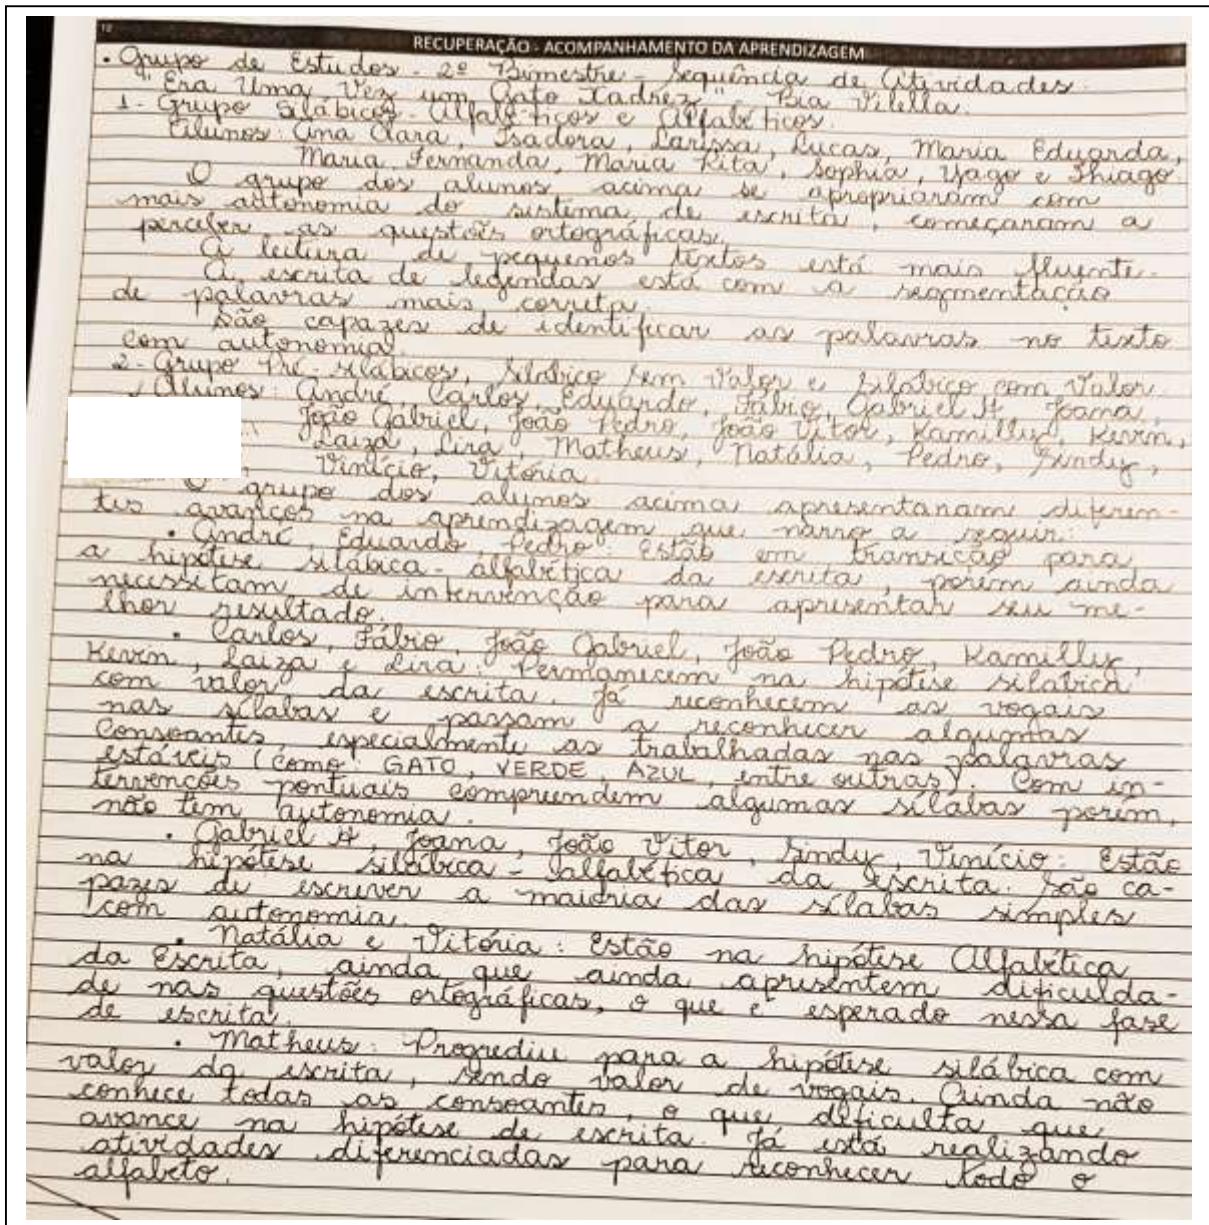 12
RECUPERAÇÃO - ACOMPANHAMENTO DA APRENDIZAGEM
• Grupo de Estudos - 2º Bimestre - Sequência de Atividades
"Era Uma Vez um Gato Xadrez" Bia Vilella.
1- Grupo Silábicos-Alfabéticos e Alfabéticos.
Alunos: Ana Clara, Isadora, Larissa, Lucas, Maria Eduarda,
Maria Fernanda, Maria Rita, Sophia, Yago e Thiago.
O grupo dos alunos acima se apropriaram com
mais autonomia do sistema de escrita, começaram a
perceber as questões ortográficas.
A leitura de pequenos textos está mais fluente.
A escrita de legendas está com a segmentação
de palavras mais correta.
São capazes de identificar as palavras no texto
com autonomia.
2- Grupo Pré-silábicos, Silábico sem Valor e Silábico com Valor.
Alunos: André, Carlos, Eduardo, Fábio, Gabriel H, Joana,
João Gabriel, João Pedro, João Vitor, Kamilly, Kevin,
Laiza, Lira, Matheus, Natália, Pedro, Sindy,
, Vinício, Vitória.
O grupo dos alunos acima apresentaram diferen-
tes avanços na aprendizagem que narro a seguir:
• André, Eduardo, Pedro: Estão em transição para
a hipótese silábica-alfabética da escrita, porém ainda
necessitam de intervenção para apresentar seu me-
lhor resultado.
• Carlos, Fábio, João Gabriel, João Pedro, Kamilly,
Kevin, Laiza e Lira: Permanecem na hipótese silábica
com valor da escrita. Já reconhecem as vogais
nas sílabas e passam a reconhecer algumas
consoantes especialmente as trabalhadas nas palavras
estáveis (como GATO, VERDE, AZUL, entre outras). Com in-
tervenções pontuais compreendem algumas sílabas porém,
não tem autonomia.
• Gabriel H, Joana, João Vitor, Sindy, Vinício: Estão
na hipótese silábica-alfabética da escrita. São ca-
pazes de escrever a maioria das sílabas simples
com autonomia.
• Natália e Vitória: Estão na hipótese Alfabética
da Escrita, ainda que ainda apresentem dificulda-
de nas questões ortográficas, o que é esperado nessa fase
de escrita.
• Matheus: Progrediu para a hipótese silábica com
valor da escrita, sendo valor de vogais. Ainda não
conhece todas as consoantes, o que dificulta que
avance na hipótese de escrita. Já está realizando
atividades diferenciadas para reconhecer todo o
alfabeto.